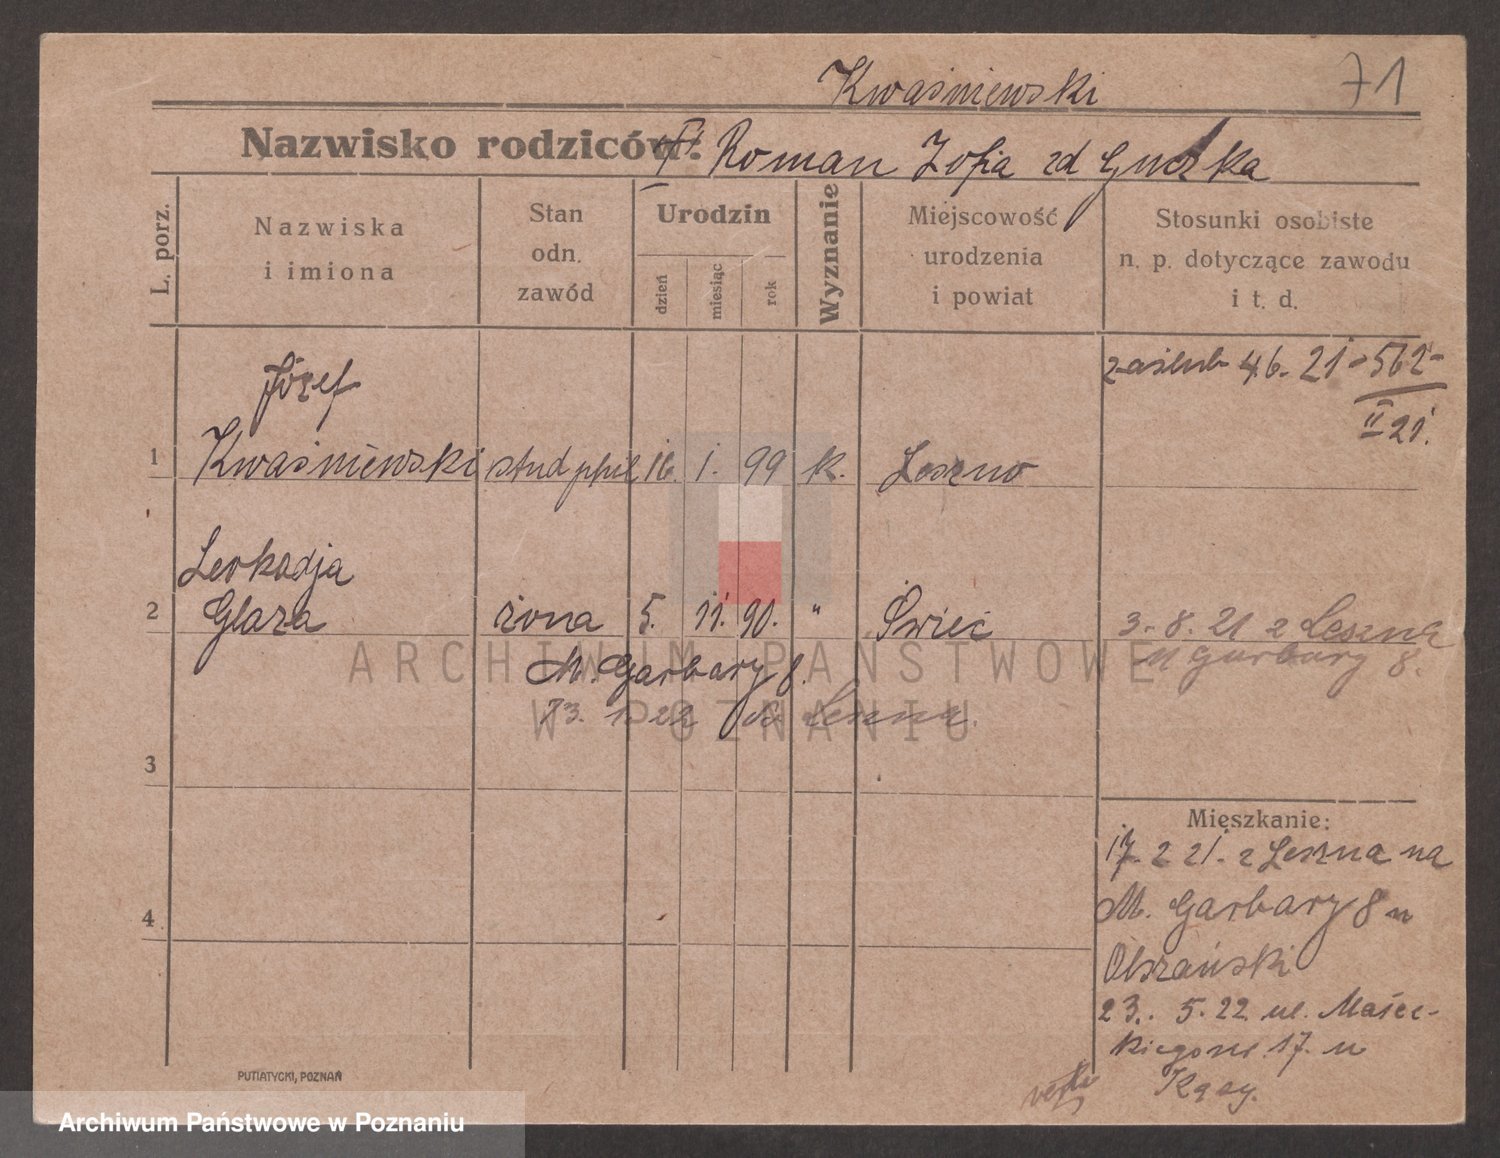 Kwaśniewski
71
Nazwisko rodziców: Roman Zofia zd
L. porz.
Nazwiska i imiona
Stan odn. zawód
Urodzin
dzień
miesiąc
rok
Wyznanie
Miejscowość urodzenia i powiat
Stosunki osobiste n. p. dotyczące zawodu i t. d.
zaślub 4.6. 21 - 562 -
II 21.
Józef
1 Kwaśniewski stud phil 16. 1. 99 k. Leszno
Leokadja
2 Glaza żona 5. 11. 90. " Świeć
3. 8. 21 z Leszna
M Garbary 8.
M. Garbary 8.
ARCHIWUM PAŃSTWOWE
W POZNANIU
3
Mieszkanie:
17. 2 21. z Leszna na
M. Garbary 8 u
4
Olszański
23. 5. 22 ul. Małec-
kiego 17. u
PUTIATYCKI, POZNAŃ
Archiwum Państwowe w Poznaniu